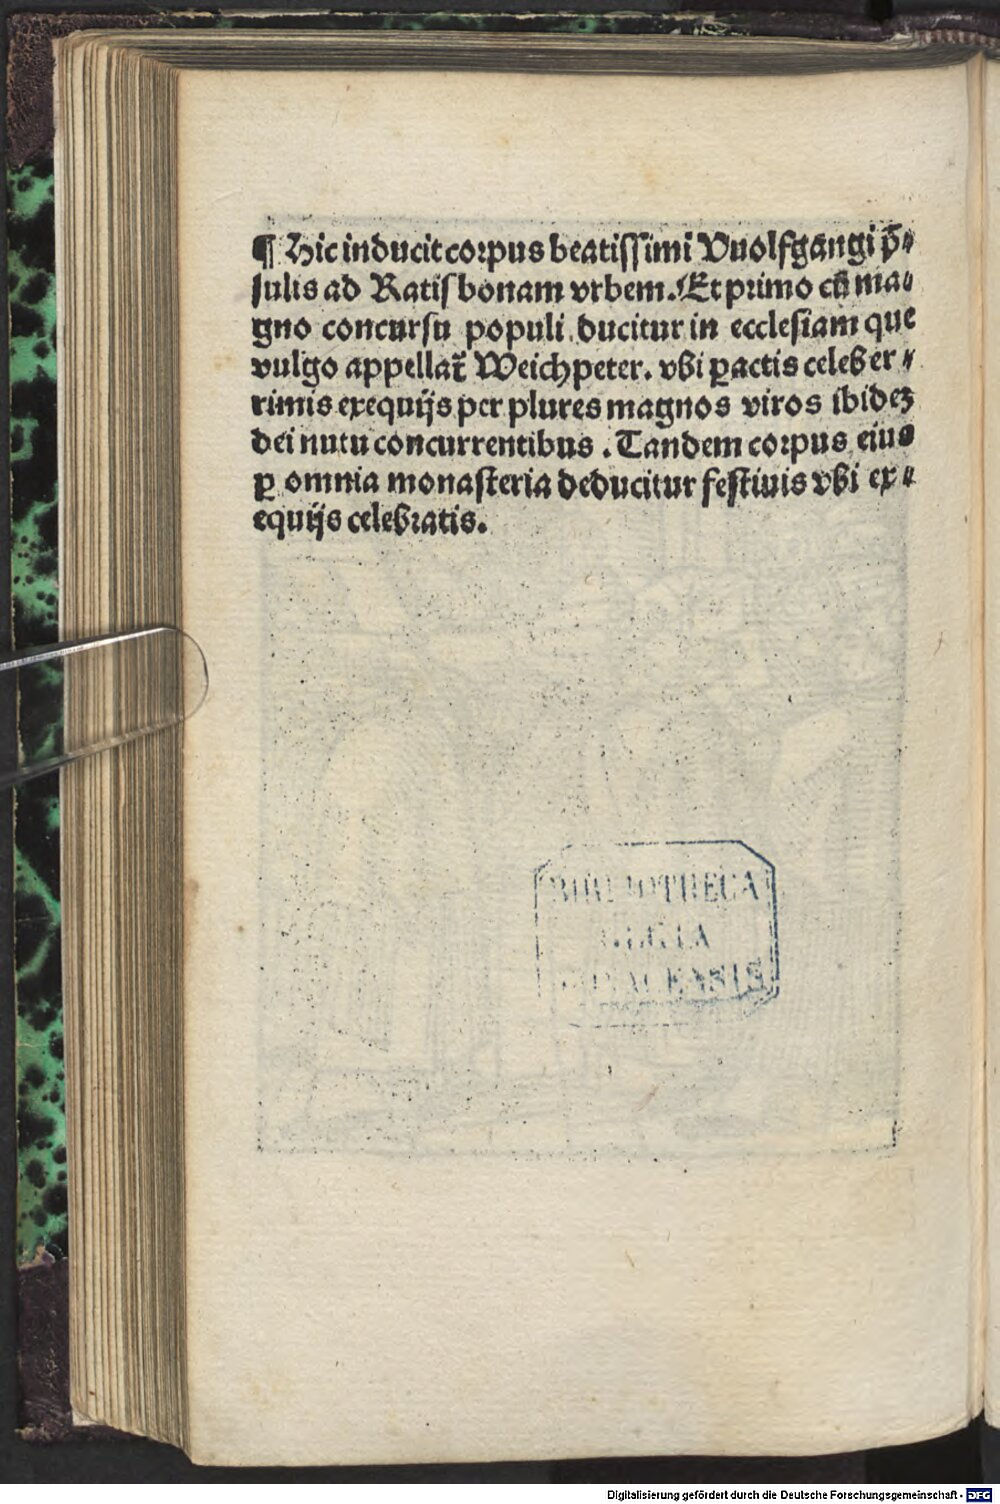 ¶ Hic inducit corpus beatissimi Vuolfgangi p̄⸗
sulis ad Ratisbonam vrbem. Et primo cū ma⸗
gno concursu populi ducitur in ecclesiam que
vulgo appellat̄ Weichpeter. vbi ꝑactis celeber⸗
rimis exequijs per plures magnos viros ibidez
dei nutu concurrentibus. Tandem corpus eius
ꝑ omnia monasteria deducitur festiuis vbi ex⸗
equijs celebratis.
BIBLIOTHECA
REGIA
MONACENSIS
Digitalisierung gefördert durch die Deutsche Forschungsgemeinschaft - DFG